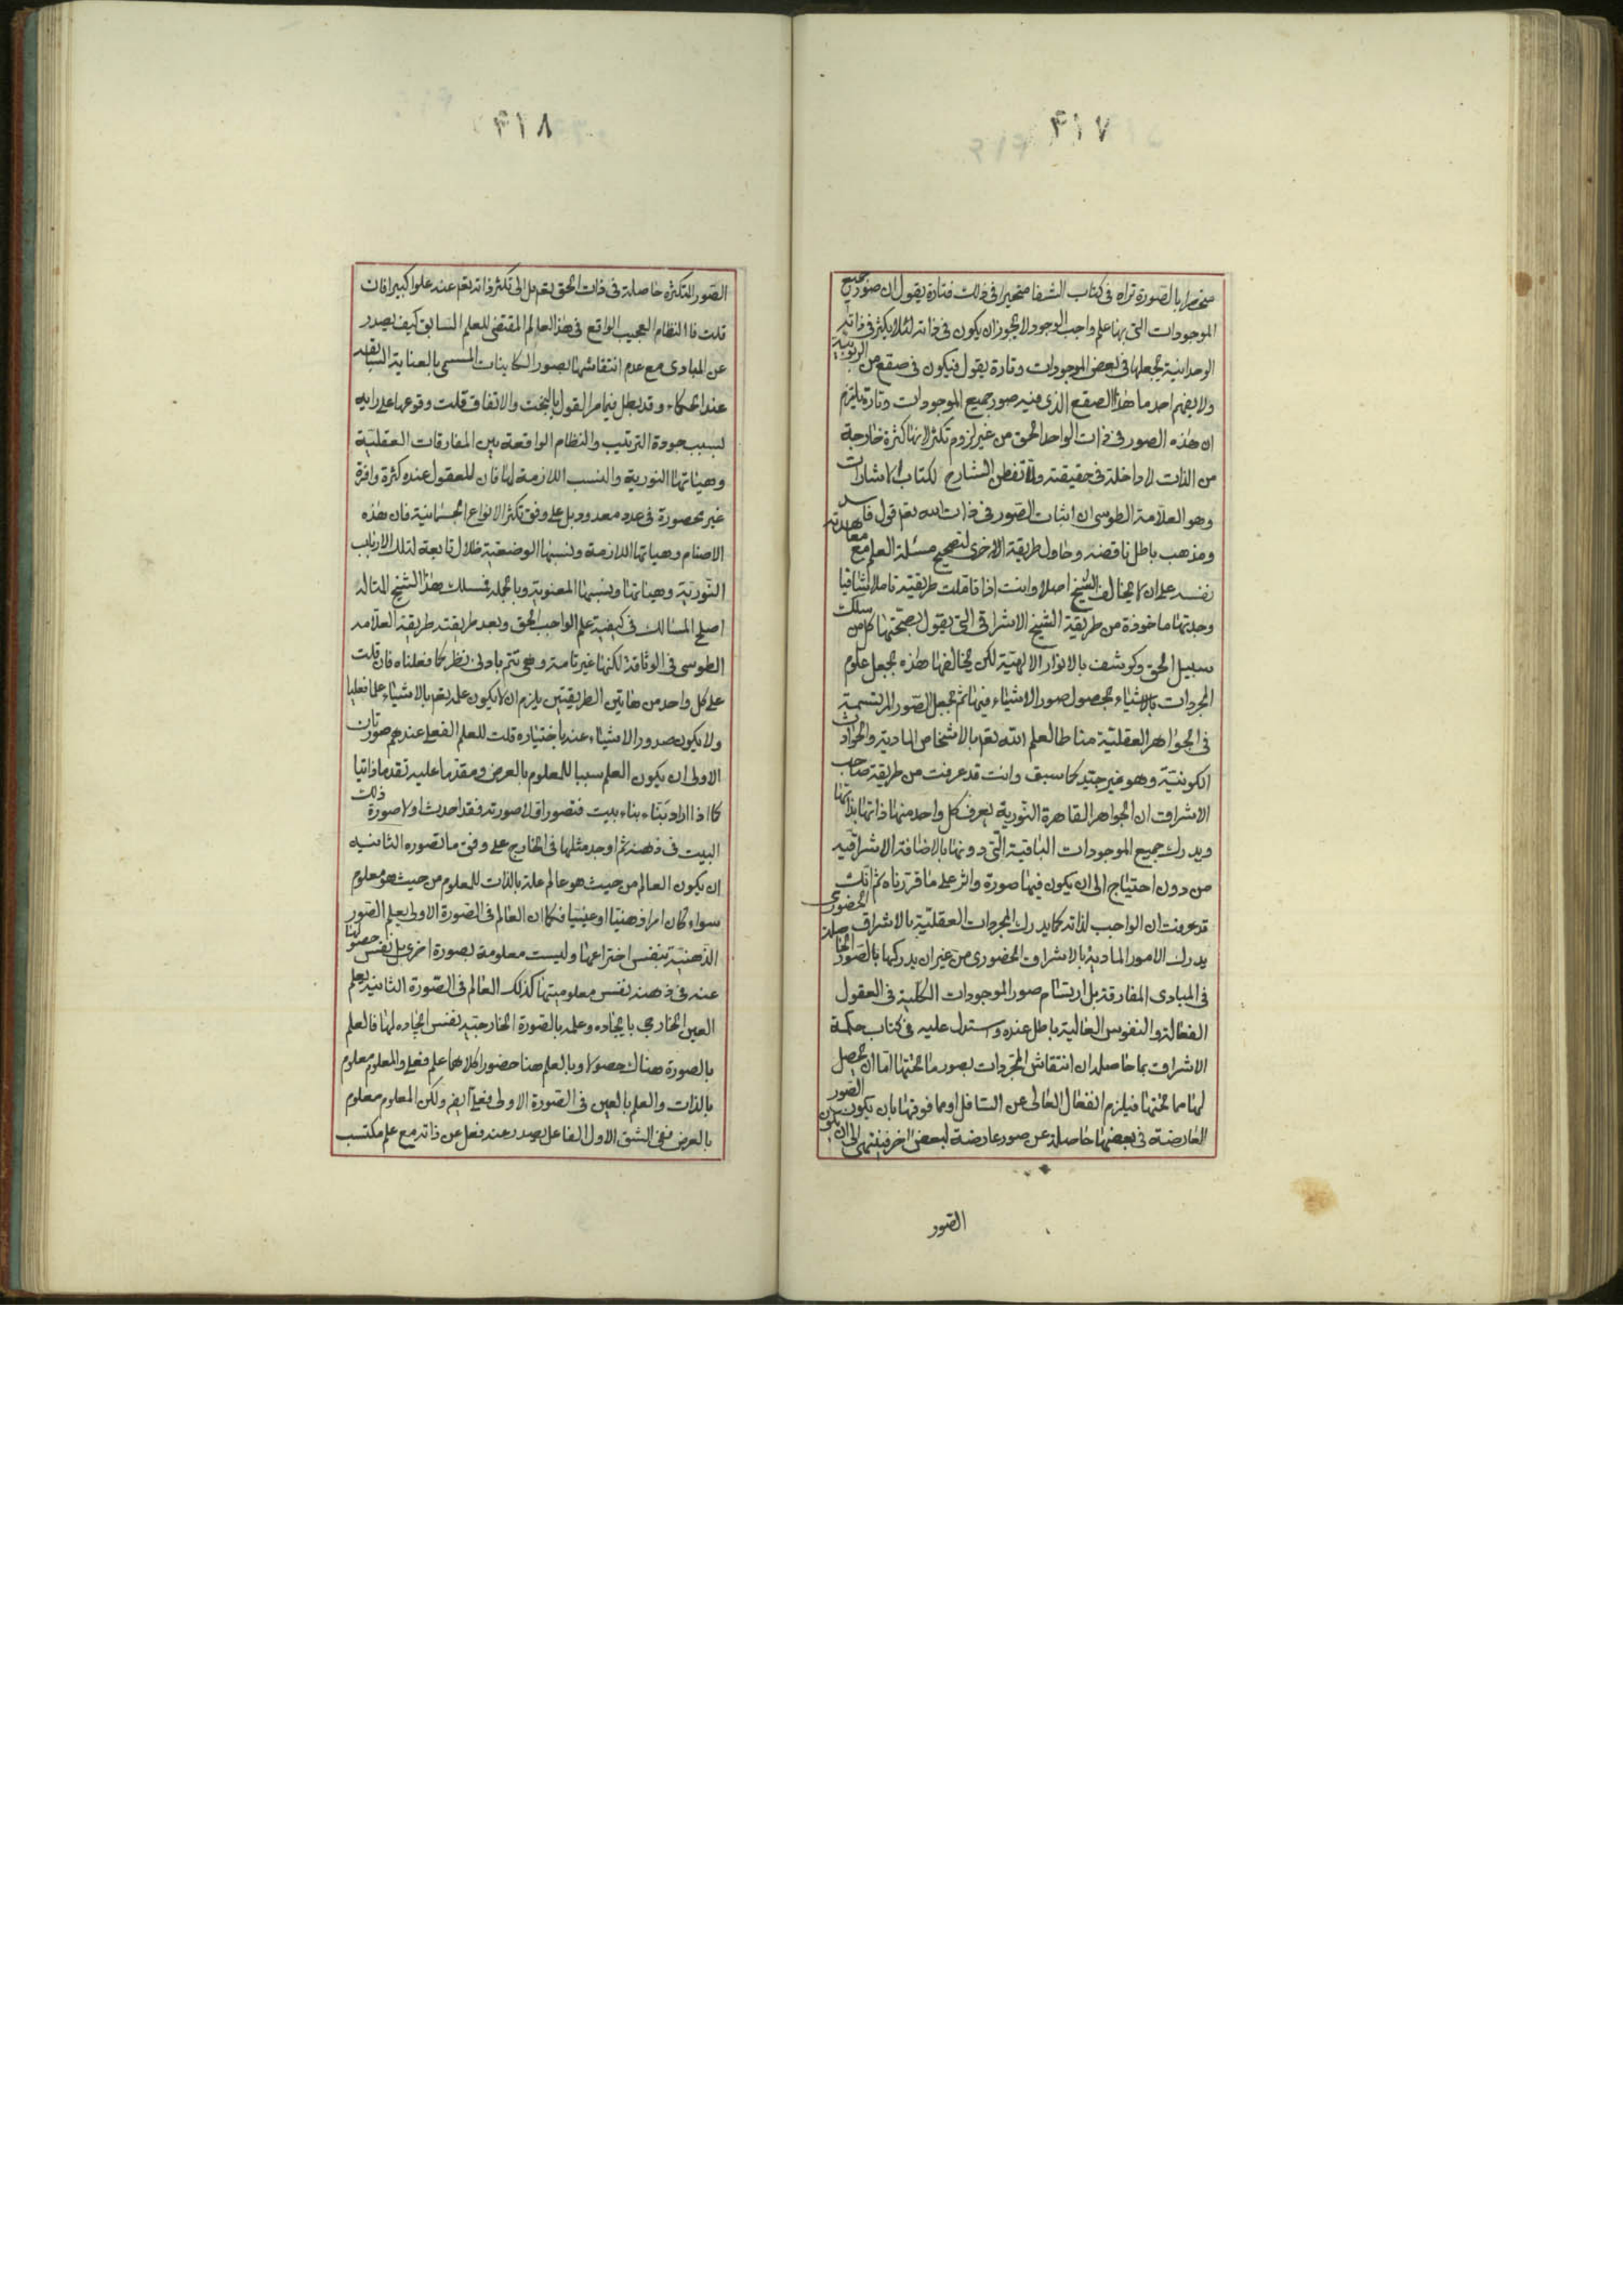 ٤١٧
منحصرا بالصورة تراه فى كتاب الشفا متحيرا فى ذلك فتارة يقول ان صور جميع
الموجودات التى بها علم واجب الوجود لا يجوز ان يكون فى ذاته لئلا يكثر فى ذاته
الوحدانية يجعلها فى بعض الموجودات وتارة يقول فيكون فى صقع من الربوبية
ولا يفهم احد ما هذا الصقع الذى فيه صور جميع الموجودات وتارة يلتزم
ان هذه الصور فى ذات الواحد الحق من غير لزوم تكثر لانها كثرة خارجة
من الذات لا داخلة فى حقيقته ولما تفطن الشارح لكتاب الاشارات
وهو العلامة الطوسى ان اثبات الصور فى ذات الله تعم قول فاسد
ومذهب باطل ناقضه وحاول طريقة الاخرى لتصحيح مسئلة العلم مع معاهدته
نفسه على ان لا يخالف الشيخ اصلا وانت اذا تاملت طريقته تاملا شافيا
وجدتها ماخوذة من طريقة الشيخ الاشراقى التى يقول بصحتها كل من سلك
سبيل الحق وكوشف بالانوار الالهية لكن يخالفها هذه بجعل علوم
المجردات بالاشياء بحصول صور الاشياء فيها ثم بجعل الصور المرتسمة
فى الجواهر العقلية مناطا لعلم الله تعم بالاشخاص المادية والحوادث
الكونية وهو غير جيد كما سبق وانت قد عرفت من طريقة صاحب
الاشراق ان الجواهر القاهرة النورية يعرف كل واحد منها ذاتها بذاتها
ويدرك جميع الموجودات الباقية التى دونها بالاضافة الاشراقيه
من دون احتياج الى ان يكون فيها صورة واثر على ما قررناه ثم انك
قد عرفت ان الواجب لذاته كما يدرك المجردات العقلية بالاشراق الحضورى
يدرك الامور المادية بالاشراق الحضورى من غير ان يدركها بالصور الحاصلة
فى المبادى المفارقة بل ارتسام صور الموجودات الكلية فى العقول
الفعالة والنفوس العالية باطل عنده واستدل عليه فى كتاب حكمة
الاشراق بما حاصله ان انتقاش المجردات بصور ما تحتها اما ان يحصل
لها مما تحتها فيلزم انفعال العالى عن السافل او مما فوقها بان يكون الصور
العارضة فى بعضها حاصلة عن صور عارضة لبعض اخر فينتهى الى ان يكون
الصور
٤١٨
الصور المتكثرة حاصلة فى ذات الحق تعم بل الى تكثر ذاته تعم عنه علوا كبيرا فان
قلت فالنظام العجيب الواقع فى هذا العالم المقتضى للعلم السابق كيف يصدر
عن المبادى مع عدم انتقاشها بصور الكاينات المسمى بالعناية السابقه
عند الحكماء وقد بطل فيما مر القول بالبخت والاتفاق قلت وقوعها على رايه
لسبب جودة الترتيب والنظام الواقعة بين المفارقات العقلية
وهيئاتها النورية والنسب اللازمة لها فان للعقول عنده كثرة وافرة
غير محصورة فى عدد معدود بل على وفق تكثر الانواع الجسمانية فان هذه
الاصنام وهياتها اللازمة ونسبها الوضعية ظلال تابعة لتلك الارباب
النورية وهيئاتها ونسبها المعنوية وبالجملة فمسلك هذا الشيخ المتاله
اصلح المسالك فى كيفية علم الواجب الحق وبعد طريقته طريقة العلامه
الطوسى فى الوثاقة لكنها غير تامة وهى تتم بادنى نظر كما فعلناه فان قلت
على كل واحد من هاتين الطريقتين يلزم ان لا يكون علمه تعم بالاشياء علما فعليا
ولا يكون صدور الاشياء عنه باختياره قلت للعلم الفعلى عندهم صورتان
الاولى ان يكون العلم سببا للمعلوم بالعرض ومقدما عليه تقدما ذاتيا
كما اذا اراد بناء بناء بيت فتصور اولا صورته فقد احدث اولا صورة ذلك
البيت فى ذهنه ثم اوجد مثلها فى الخارج على وفق ما تصوره الثانيه
ان يكون العالم من حيث هو عالم علة بالذات للمعلوم من حيث هو معلوم
سواء كان امرا ذهنيا او عينيا فكما ان العالم فى الصورة الاولى يعلم الصور
الذهنية بنفس اختراعها وليست معلومة بصورة اخرى بل نفس حصولها
عنه فى ذهنه نفس معلوميتها كذلك العالم فى الصورة الثانيه يعلم
العين الخارجى بايجاده وعلمه بالصورة الخارجية نفس ايجاده لها فالعلم
بالصورة هناك حصولا وبالعلم هنا حضورا كلاهما علم فعلى والمعلوم معلوم
بالذات والعلم بالعين فى الصورة الاولى فعلى ايضا ولكن المعلوم معلوم
بالعرض ففى الشق الاول الفاعل يصدر عنه فعل عن ذاته مع علم مكتسب